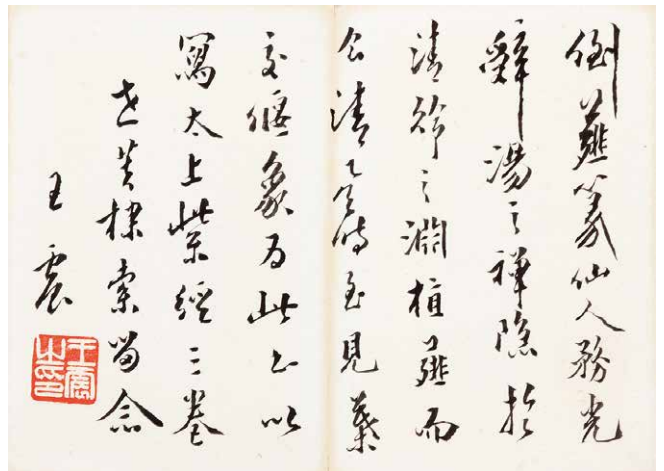 倒薤篆仙人務光
辭湯之禪隱於
清泠之淵植薤而
食清風時至見葉
交偃象為此書以
寫太上紫經三卷
棣索留念
王震
王震之印